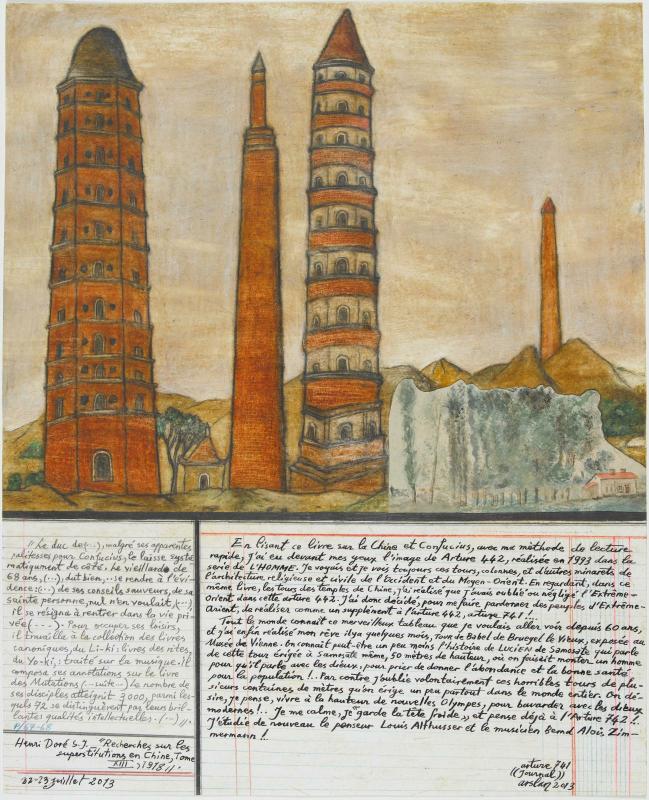 "Le duc de (...), malgré ses apparentes
politesses pour Confucius, le laisse systé
matiquement de côté. Le vieillard de
68 ans, (...), dut bien, se rendre à l'évi-
dence: (...) de ses conseils sauveurs, de sa
sainte personne, nul n'en voulait, (...),
il se résigna à rentrer dans la vie pri-
vée (- - -). Pour occuper ses loisirs,
il travailla à la collection des livres
canoniques, du Li-ki: livre des rites,
du Yo-ki: traité sur la musique. Il
composa ses annotations sur le livre
des Mutations (-suite-) Le nombre de
ses disciples atteignit 3000, parmi les-
quels 72 se distinguèrent par leurs bril-
lantes qualités intellectuelles. (...)"
P/67-68
Henri Doré S-J. "Recherches sur les
superstitutions en Chine, Tome
XIII -, 1918 //.
22-23 juillet 2013
En lisant ce livre sur la Chine et Confucius, avec ma méthode de lecture
rapide, j'ai eu devant mes yeux l'image de Arture 442, réalisée en 1993 dans la
serie de L'HOMME. Je voyais et je vois toujours ces tours, colonnes, et d'autres minarets de
l'architecture religieuse et civile de l'Occident et du Moyen-Orient. En regardant, dans ce
même livre, les tours des temples de Chine, j'ai réalisé que j'avais oublié ou négligé l'Extrême-
Orient dans cette arture 442. J'ai donc décidé, pour me faire pardonner des peuples d'Extrême-
Orient, de réaliser comme un supplément à l'Arture 442, arture 741!.
Tout le monde connait ce merveilleux tableau que je voulais aller voir depuis 60 ans,
et j'ai enfin réalisé mon rêve il y a quelques mois, Tour de Babel de Bruegel le Vieux, exposée au
Musée de Vienne. On connait peut-être un peu moins l'histoire de LUCIEN de Samosate qui parle
de cette tour érigée à Samosate même, 50 mètres de hauteur, où on faisait monter un homme
pour qu'il parle avec les dieux, pour prier de donner l'abondance et la bonne santé
pour la population!.. Par contre j'oublie volontairement ces horribles tours de plu-
sieurs centaines de mètres qu'on érige un peu partout dans le monde entier. On dé-
sire, je pense, vivre à la hauteur de nouvelles Olympes, pour bavarder avec les dieux
modernes!.. Je me calme, je "garde la tête froide", et pense déjà à l'Arture 742!.
J'étudie de nouveau le penseur Louis Althusser et le musicien Bernd Alois Zim-
mermann!
arture 741
((Journal))
arslan 2013